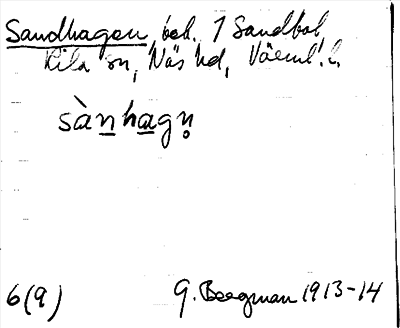 Sandhagen, beb. 1 Sandbol,
Kila sn, Näs hd, Värml. l.
sàn̲ha̲gn̥
6(9) G. Bergman 1913-14